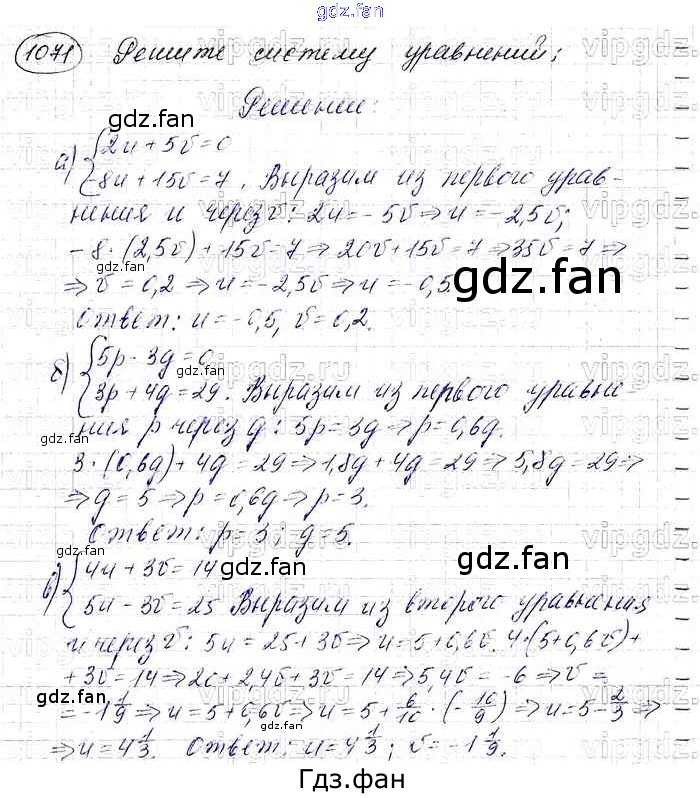 gdz.fan
1071 Решите систему уравнений:
Решение:
а) { 2u + 5v = 0
-8u + 15v = 7. Выразим из первого урав-
нения u через v: 2u = -5v ⇒ u = -2,5v;
-8·(2,5v) + 15v = 7 ⇒ 20v + 15v = 7 ⇒ 35v = 7 ⇒
⇒ v = 0,2 ⇒ u = -2,5v ⇒ u = -0,5
Ответ: u = -0,5, v = 0,2.
б) { 5p - 3q = 0
3p + 4q = 29. Выразим из первого уравне-
ния p через q: 5p = 3q ⇒ p = 0,6q.
3·(0,6q) + 4q = 29 ⇒ 1,8q + 4q = 29 ⇒ 5,8q = 29 ⇒
⇒ q = 5 ⇒ p = 0,6q ⇒ p = 3.
Ответ: p = 3; q = 5.
в) { 4u + 3v = 14
5u - 3v = 25 Выразим из второго уравнения
u через v: 5u = 25 + 3v ⇒ u = 5 + 0,6v. 4·(5 + 0,6v) +
+ 3v = 14 ⇒ 20 + 2,4v + 3v = 14 ⇒ 5,4v = -6 ⇒ v =
= -1 1/9 ⇒ u = 5 + 0,6v ⇒ u = 5 + 6/10 · (-10/9) ⇒ u = 5 - 2/3 ⇒
⇒ u = 4 1/3. Ответ: u = 4 1/3; v = -1 1/9.
Гдз.фан